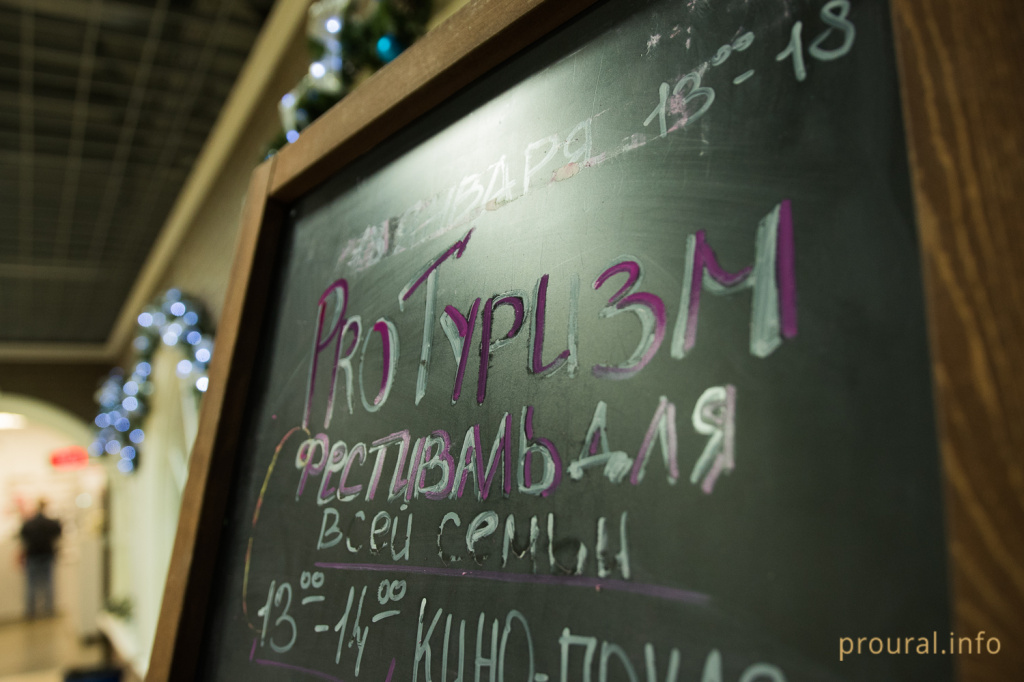 ЯНВАРЯ 13⁰⁰ - 18
PROТУРИЗМ
ФЕСТИВАЛЬ ДЛЯ
ВСЕЙ СЕМЬИ
13⁰⁰ - 14⁰⁰ КИНО-
proural.info